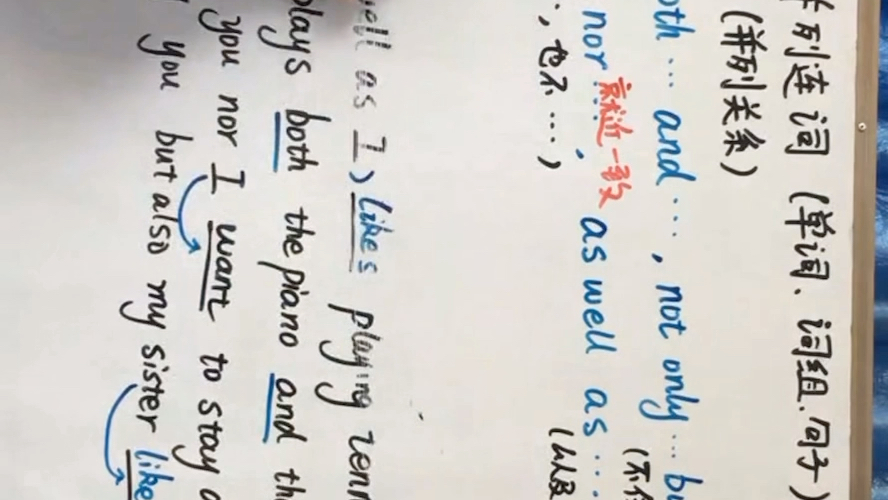 列连词 (单词、词组、句子)
(并列关系)
... and ..., not only ...
nor 就近一致, as well as ...
也不...)
as I) likes playing
plays both the piano and
you nor I want to stay
you but also my sister like